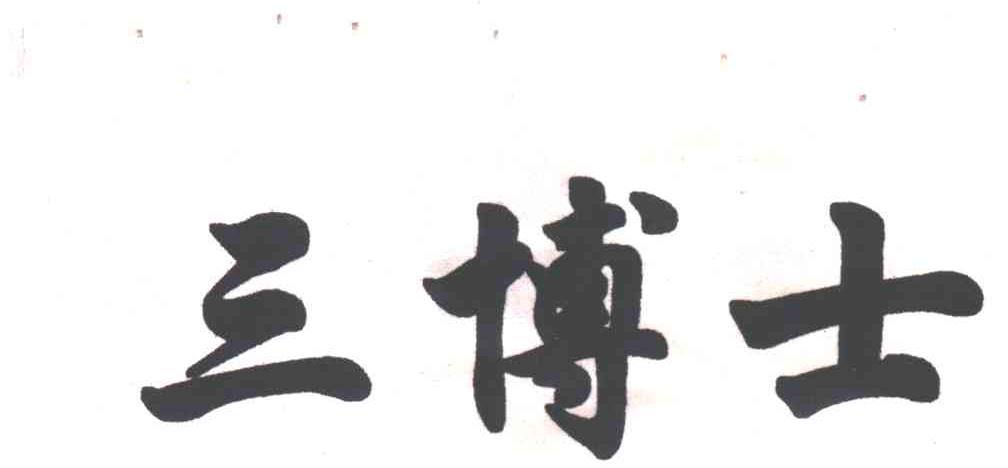 三博士